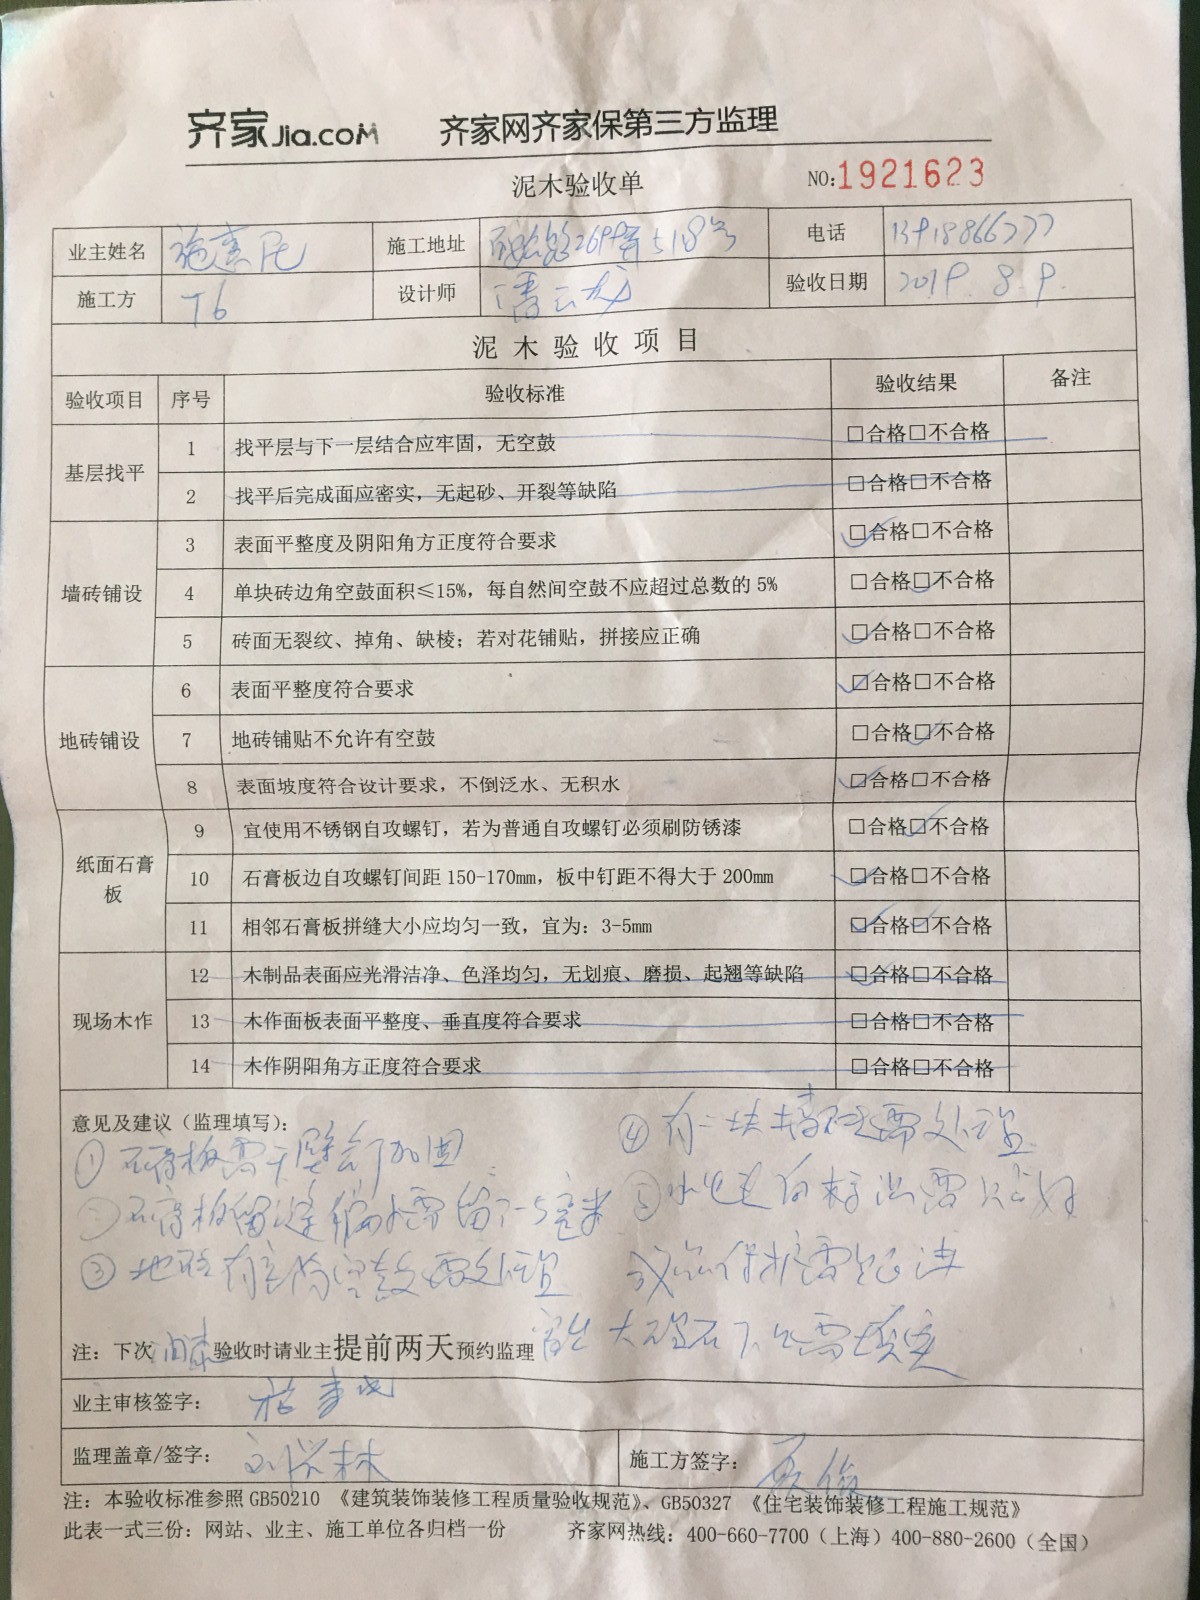 齐家Jia.com 齐家网齐家保第三方监理
泥木验收单 NO:1921623
业主姓名 施 民 施工地址 269 518号 电话
施工方 T6 设计师 潘云龙 验收日期 2019.8.9.
泥木验收项目
验收项目 序号 验收标准 验收结果 备注
基层找平
1 找平层与下一层结合应牢固，无空鼓 □合格□不合格
2 找平后完成面应密实，无起砂、开裂等缺陷 □合格□不合格
墙砖铺设
3 表面平整度及阴阳角方正度符合要求 □合格□不合格
4 单块砖边角空鼓面积≤15%，每自然间空鼓不应超过总数的5% □合格□不合格
5 砖面无裂纹、掉角、缺棱；若对花铺贴，拼接应正确 □合格□不合格
地砖铺设
6 表面平整度符合要求 □合格□不合格
7 地砖铺贴不允许有空鼓 □合格□不合格
8 表面坡度符合设计要求，不倒泛水、无积水 □合格□不合格
纸面石膏板
9 宜使用不锈钢自攻螺钉，若为普通自攻螺钉必须刷防锈漆 □合格□不合格
10 石膏板边自攻螺钉间距150-170mm，板中钉距不得大于200mm □合格□不合格
11 相邻石膏板拼缝大小应均匀一致，宜为：3-5mm □合格□不合格
现场木作
12 木制品表面应光滑洁净、色泽均匀，无划痕、磨损、起翘等缺陷 □合格□不合格
13 木作面板表面平整度、垂直度符合要求 □合格□不合格
14 木作阴阳角方正度符合要求 □合格□不合格
意见及建议（监理填写）：
①石膏板需干壁钉加固
②石膏板留缝偏小需留3-5毫米
③地砖有 空鼓需处理
④有一块墙砖 需处理
⑤水电走向标识需
成品保护需
大 石下口需填实
注：下次油漆验收时请业主提前两天预约监理
业主审核签字：
监理盖章/签字： 刘 林 施工方签字： 顾俊
注：本验收标准参照GB50210《建筑装饰装修工程质量验收规范》、GB50327《住宅装饰装修工程施工规范》
此表一式三份：网站、业主、施工单位各归档一份 齐家网热线：400-660-7700（上海）400-880-2600（全国）